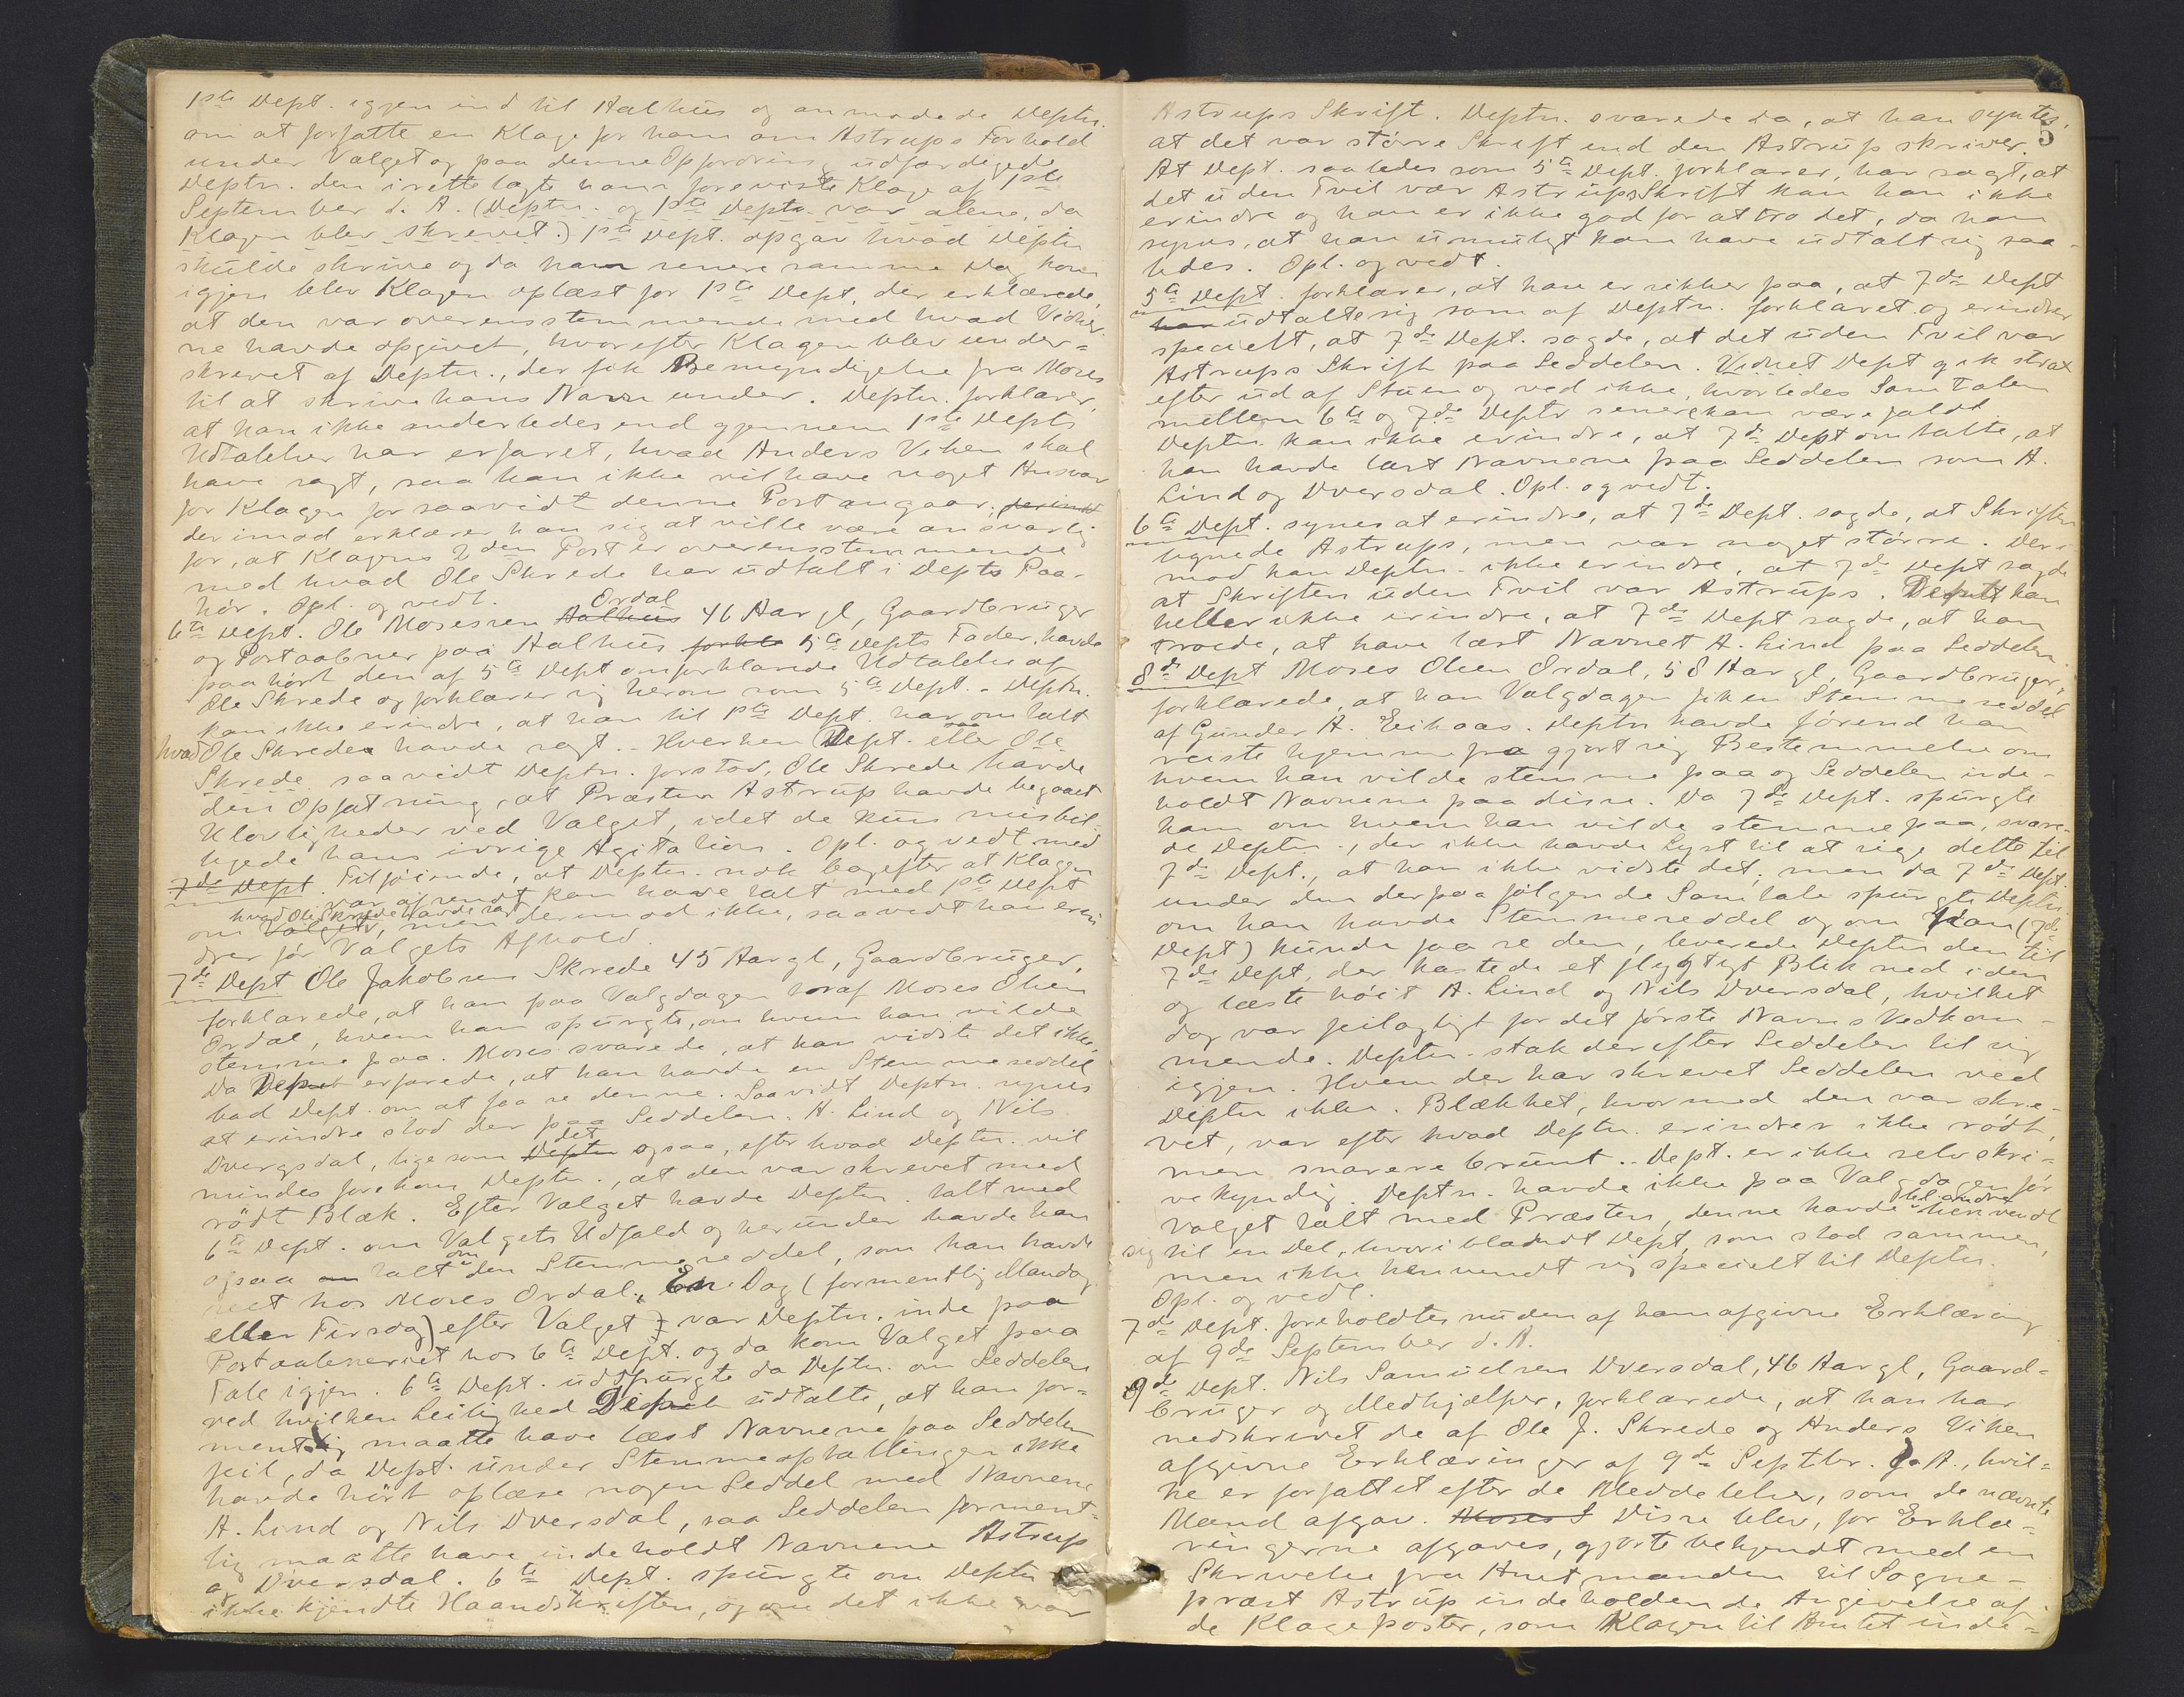 1ste Dept. igjen ind til Aalhus og anmodede Deptn.
om at forfatte en Klage for ham om Astrups Forhold
under Valget og paa denne Opfordring udfærdigede
Deptn. den i rette lagte ham foreviste Klage af 1ste
September d. A. (Deptn. og 1ste Deptn. var alene, da
Klagen blev skrevet.) 1ste Dept. opgav hvad Deptn
skulde skrive og da han senere samme Dag kom
igjen blev Klagen oplæst for 1ste Dept, der erklærede,
at den var overensstemmende med hvad Vidner-
ne havde opgivet, hvorefter Klagen blev under-
skrevet af Deptn., der fik Bemyndigelse fra Moses
til at skrive hans Navn under. Deptn. forklarer,
at han ikke anderledes end gjennem 1ste Depts
Udtalelser har erfaret, hvad Anders Viken skal
have sagt, saa han ikke vil have noget Ansvar
for Klagen forsaavidt denne Post angaar,
derimod erklærer han sig at ville være ansvarlig
for, at Klagens 2den Post er overensstemmende
med hvad Ole Skrede har udtalt i Depts Paa-
hør. Opl. og vedt.
6te Dept. Ole Mosessen Aalhus Ordal 46 Aar gl, Gaardbruger
og Postaabner paa Aalhus forkla 5te Depts Fader, havde
paahørt den af 5te Dept omforklarede Udtalelse af
Ole Skrede og forklarer sig herom som 5te Dept. - Deptn.
kan ikke erindre, at han til 1ste Dept. har omtalt
hvad Ole Skrede havde sagt. - Hverken Dept. eller Ole
Skrede saavidt Deptn. forstod, Ole Skrede havde
den Opfatning, at Præsten Astrup havde begaaet
Ulovligheder ved Valget, idet de kun misbil-
ligede hans ivrige Agitation. Opl. og vedt med
7de Dept. Tilføiende, at Deptn. nok bagefter at Klagen
var afsendt kan have talt med 1ste Dept
om Valget hvad Ole Skrede havde sagt, men derimod ikke, saavidt han erin
drer før Valgets Afhold.
7de Dept Ole Jakobsen Skrede 45 Aar gl, Gaardbruger,
forklarede, at han paa Valgdagen traf Moses Olsen
Ordal, hvem han spurgte, om hvem han vilde
stemme paa. Moses svarede, at han vidste det ikke.
Da Dept erfarede, at han havde en Stemmeseddel
bad Dept. om at faa se denne. Saavidt Deptn synes
at erindre stod der paa Seddelen A. Lind og Nils
Dvergsdal, lige som Deptn det ogsaa, efter hvad Deptn. vil
mindes forekom Deptn., at den var skrevet med
rødt Blæk. Efter Valget havde Deptn. talt med
6te Dept. om Valgets Udfald og herunder havde han
ogsaa om talt om den Stemmeseddel, som han havde
seet hos Moses Ordal. En Dag (formentlig Mandag
eller Tirsdag) efter Valget var Deptn. inde paa
Postaabneriet hos 6te Dept. og da kom Valget paa
Tale igjen. 6te Dept. udspurgte da Deptn. om Seddelen
ved hvilken Leilighed Dept udtalte, at han for-
mentlig maatte have læst Navnene paa Seddelen
feil, da Dept. under Stemmeoptællingen ikke
havde hørt oplæse nogen Seddel med Navnene
A. Lind og Nils Dversdal, saa Seddelen forment-
lig maatte have indeholdt Navnene Astrup
og Dversdal. 6te Dept. spurgte om Deptn
ikke kjendte Haandskriften, og om det ikke var
5
Astrups Skrift. Deptn. svarede da, at han syntes,
at det var større Skrift end den Astrup skriver.
At Dept. saaledes som 5te Dept. forklarer, har sagt, at
det uden Tvil var Astrups Skrift kan han ikke
erindre og han er ikke god for at tro det, da han
synes, at han umuligt kan have udtalt sig saa-
ledes. Opl. og vedt.
5te Dept. forklarer, at han er sikker paa, at 7de Dept
har udtalte sig som af Deptn. forklaret og erindrer
specielt, at 7de Dept. sagde, at det uden Tvil var
Astrups Skrift paa Seddelen. Vidnet Dept gik strax
efter ud af Stuen og ved ikke, hvorledes Samtalen
mellem 6te og 7de Deptn senere kan være faldt.
Deptn. kan ikke erindre, at 7de Dept omtalte, at
han havde læst Navnene paa Seddelen som A.
Lind og Dversdal. Opl. og vedt.
6te Dept. synes at erindre, at 7de Dept. sagde, at Skriften
lignede Astrups, men var noget større. Der-
mod kan Deptn. ikke erindre, at 7de Dept sagde
at Skriften uden Tvil var Astrups. Deptn kan
heller ikke erindre, at 7de Dept sagde, at han
troede, at have læst Navnet A. Lind paa Seddelen.
8de Dept Moses Olsen Ordal, 58 Aar gl, Gaardbruger,
forklarede, at han Valgdagen fik en Stemmeseddel
af Gunder A. Eikaas. Deptn havde førend han
reiste hjemmefra gjort sig Bestemmelse om
hvem han vilde stemme paa og Seddelen inde-
holdt Navnene paa disse. Da 7de Dept. spurgte
ham om hvem han vilde stemme paa, svare-
de Deptn., der ikke havde Lyst til at sige dette til
7de Dept., at han ikke vidste det; men da 7de Dept.
under den derpaa følgende Samtale spurgte Deptn.
om han havde Stemmeseddel og om han (7de
Dept) kunde faa se den, leverede Deptn den til
7de Dept, der kastede et flygtigt Blik ned i den
og læste høit A. Lind og Nils Dversdal, hvilket
dog var feilagtigt for det første Navns Vedkom-
mende. Deptn. stak derefter Seddelen til sig
igjen. Hvem der har skrevet Seddelen ved
Deptn ikke. Blækket, hvormed den var skre-
vet, var efter hvad Deptn. erindrer ikke rødt,
men snarere brunt. - Dept. er ikke selv skri-
vekyndig. Deptn. havde ikke paa Valgdagen før
Valget talt med Præsten, denne havde til andre henvendt
sig til en Del, hvoriblandt Dept, som stod sammen,
men ikke henvendt sig specielt til Deptn.
Opl. og vedt.
7de Dept. foreholdtes nu den af ham afgivne Erklæring
af 9de September d. A.
9de Dept. Nils Samuelsen Dversdal, 46 Aar gl, Gaard-
bruger og Medhjælper, forklarede, at han har
nedskrevet de af Ole J. Skrede og Anders Viken
afgivne Erklæringer af 9de Septbr. d. A., hvil-
ke er forfattet efter de Meddelelser, som de nævnte
Mænd afgav. Moses S Disse blev, før Erklæ-
ringerne afgaves, gjort bekjendt med en
Skrivelse fra Amtmanden til Sogne-
præst Astrup indeholdende Angivelse af
de Klageposter, som Klagen til Amtet inde-